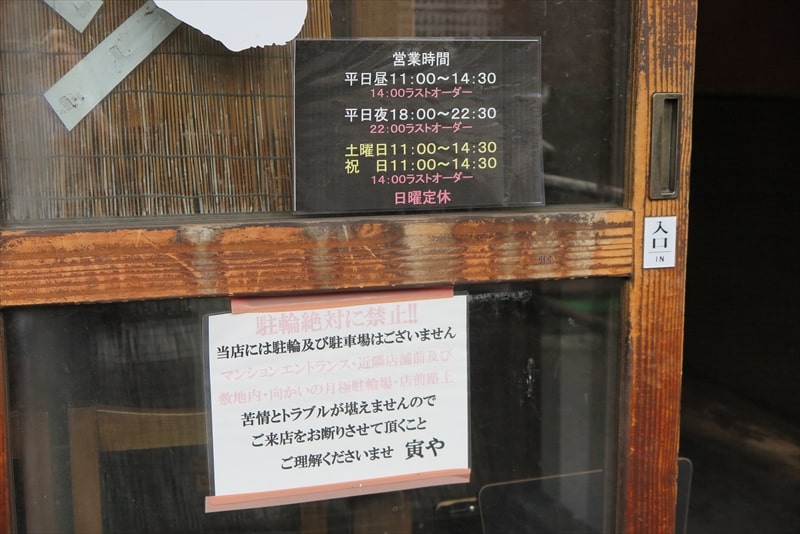 営業時間
平日昼11:00～14:30
14:00ラストオーダー
平日夜18:00～22:30
22:00ラストオーダー
土曜日11:00～14:30
祝　日11:00～14:30
14:00ラストオーダー
日曜定休
入口
IN
駐輪絶対に禁止!!
当店には駐輪及び駐車場はございません
マンションエントランス・近隣店舗前及び
敷地内・向かいの月極駐輪場・店前路上
苦情とトラブルが堪えませんので
ご来店をお断りさせて頂くこと
ご理解くださいませ 寅や